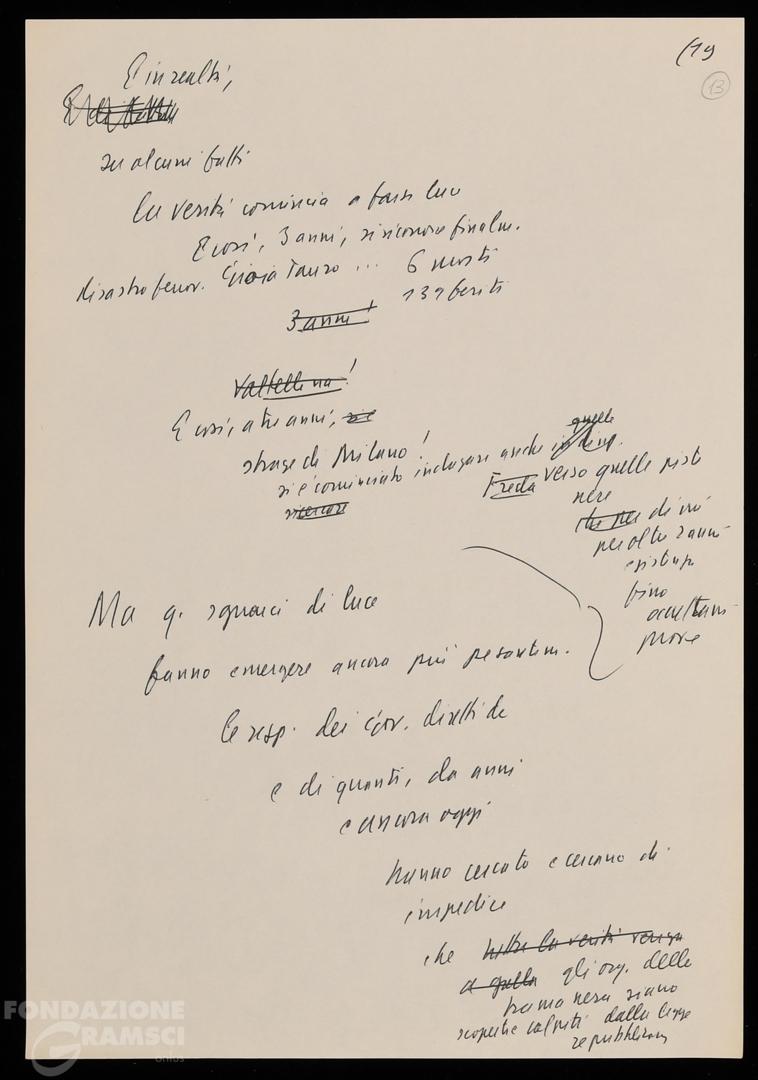 (19
13
E in realtà,
su alcuni fatti
la verità comincia a farsi luce
E così, 3 anni, si riconosce finalm.
disastro ferrov. Gioia Tauro ... 6 morti
139 feriti
3 anni!
Valtellina!
E così, a tre anni, si è
strage di Milano!
si è cominciato indagare anche
quelle
Freda verso quelle piste
ricercare
nere
che per di più
per oltre 2 anni
fino
occultam.
prove
Ma q. squarci di luce
fanno emergere ancora più pesantem.
le resp. dei Gov. diretti da
e di quanti, da anni
e ancora oggi
hanno cercato e cercano di
impedire
che tutta la verità venga
a galla gli org. della
trama nera siano
scoperti e colpiti dalla legge
repubblicana
FONDAZIONE
GRAMSCI
onlus